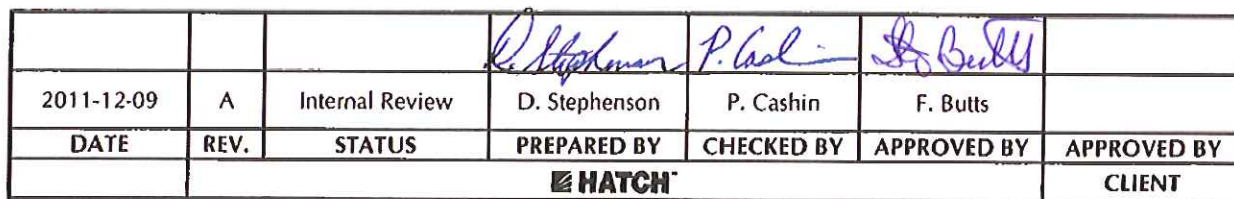 D. Stephenson P. Cashin Butts
2011-12-09 A Internal Review D. Stephenson P. Cashin F. Butts
DATE REV. STATUS PREPARED BY CHECKED BY APPROVED BY APPROVED BY
HATCH CLIENT